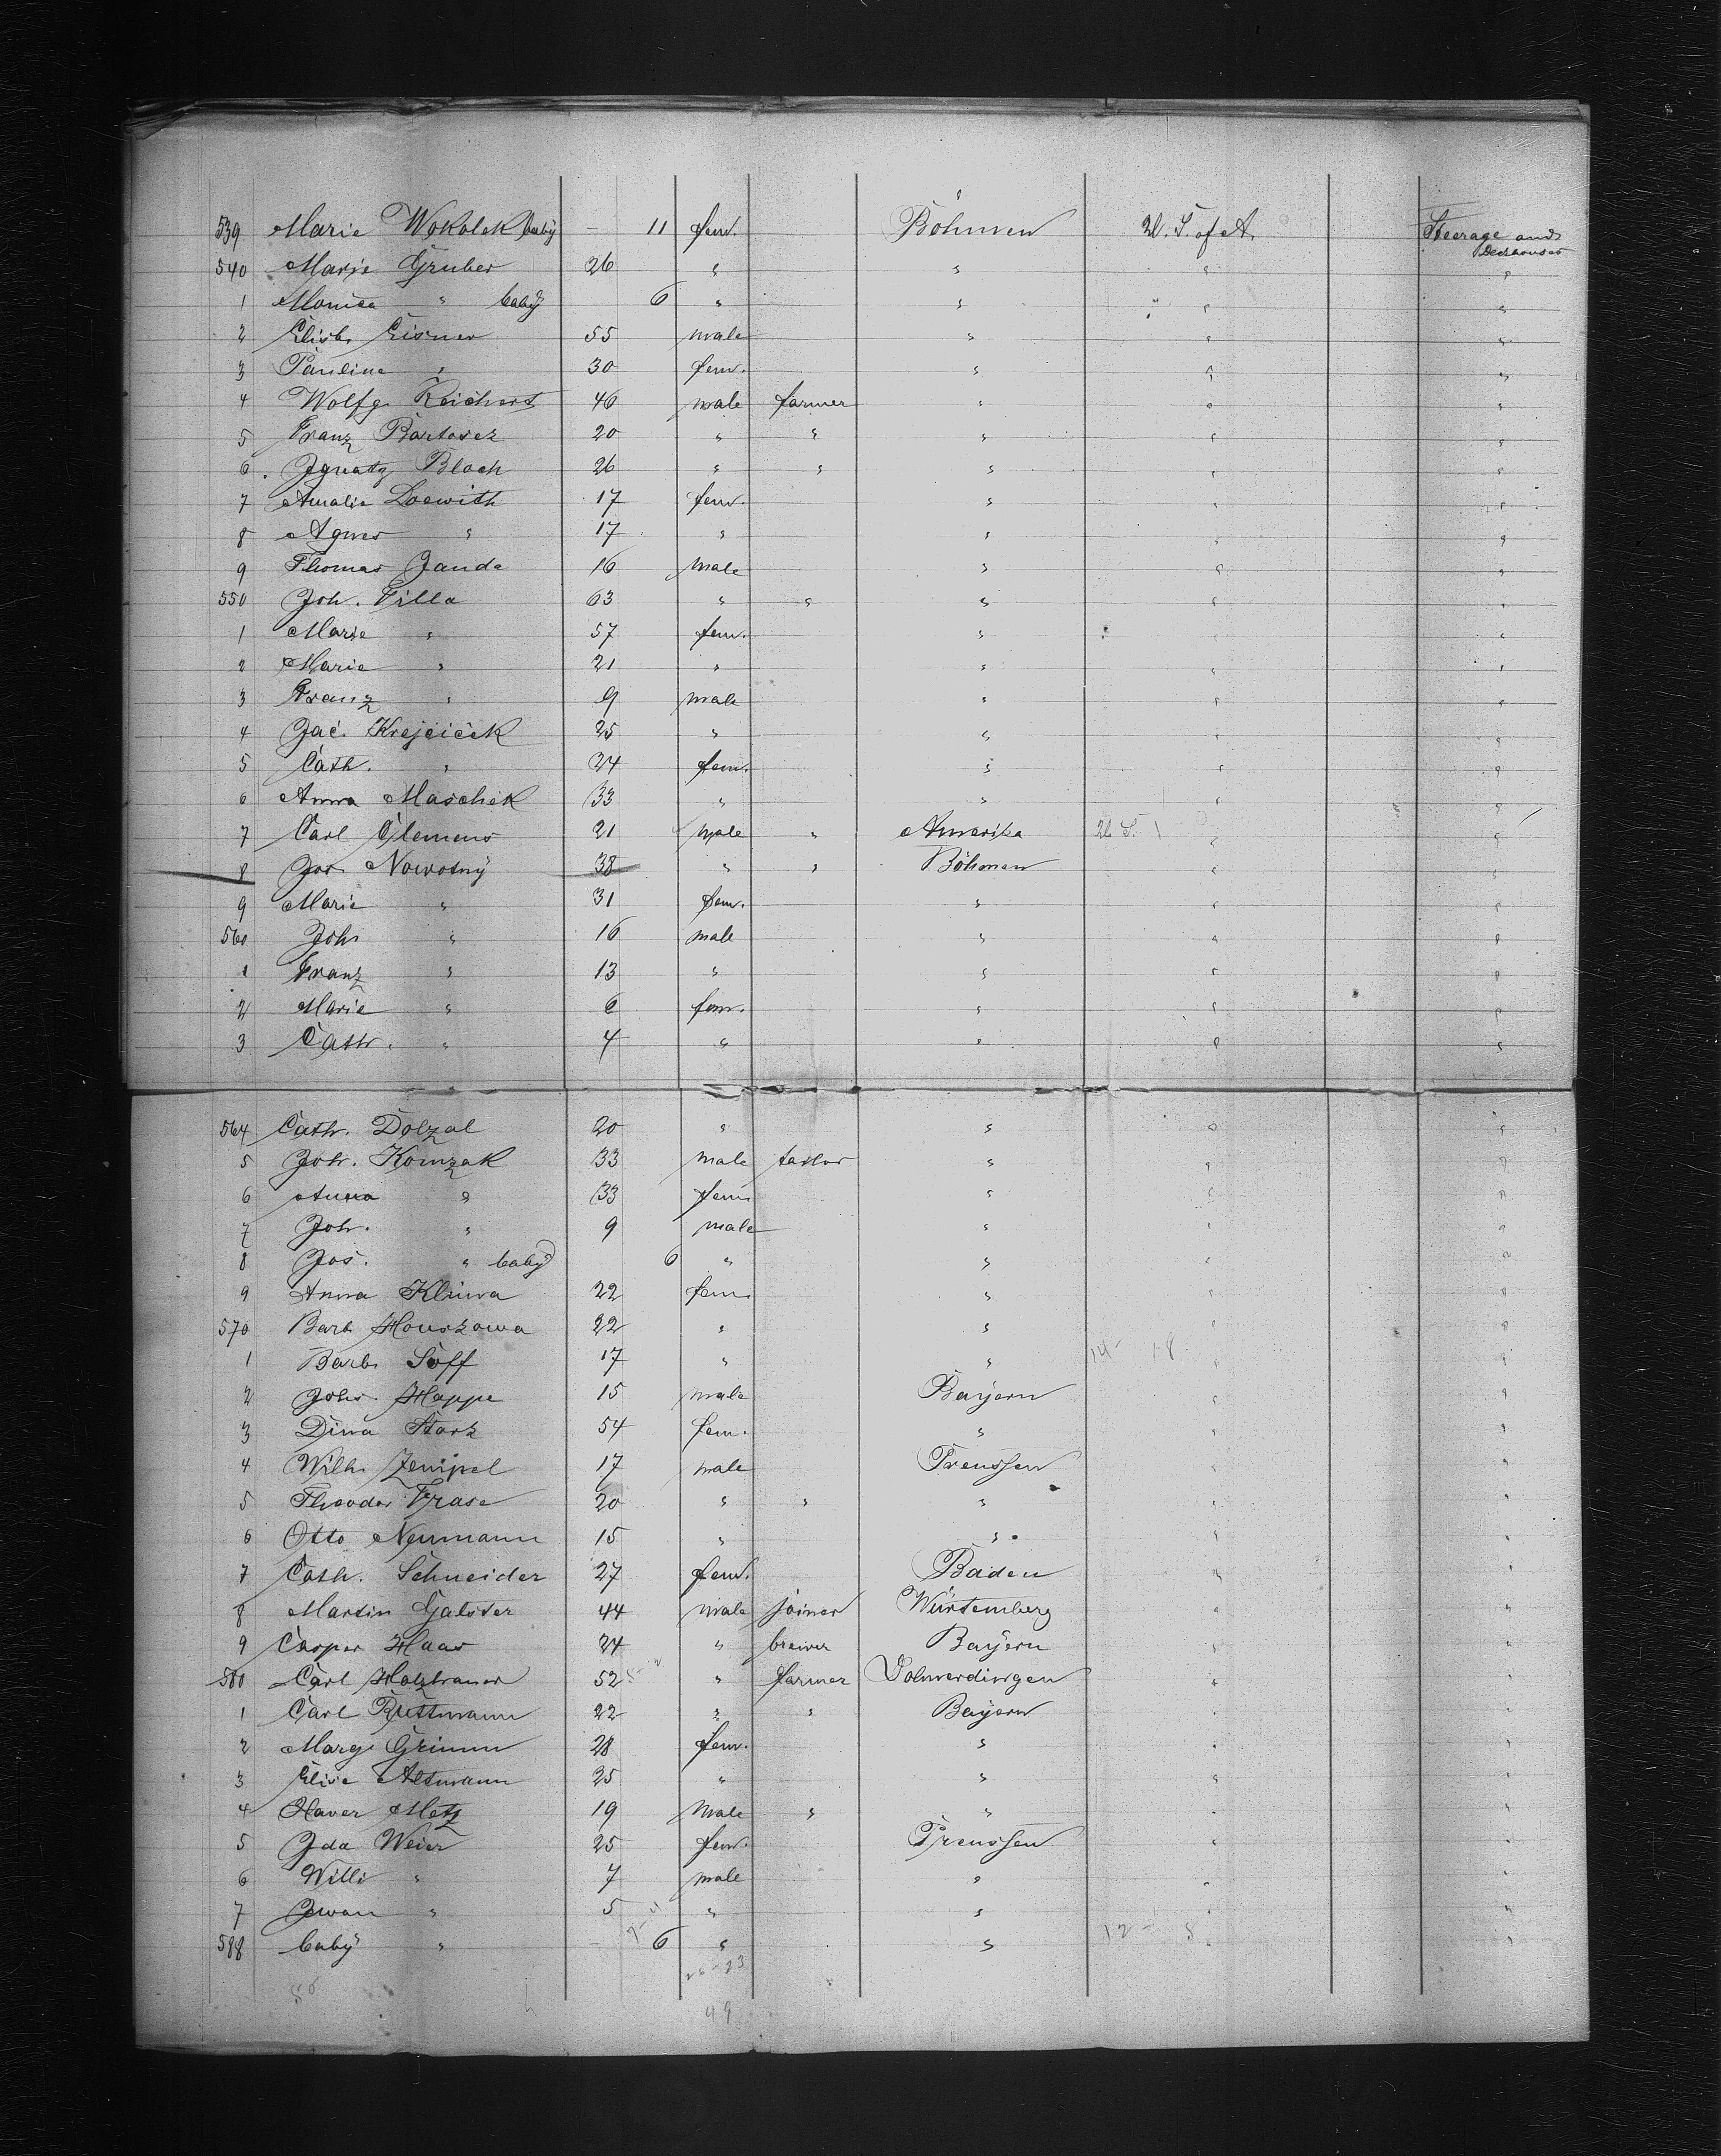 539 Marie Wokolek baby – 11 fem. Böhmen U. S. of A. Steerage and Deckhouses
540 Marie Gruber 26 " " " "
1 Monica " baby 6 " " " "
2 Elisb. Eisner 55 male " " "
3 Pauline " 30 fem. " " "
4 Wolfg. Reichert 46 male farmer " " "
5 Franz Bartosez 20 " " " " "
6 Ignatz Bloch 26 " " " " "
7 Amalie Loewith 17 fem. " " "
8 Agnes " 17 " " " "
9 Thomas Janda 16 male " " "
550 Joh. Filla 63 " " " " "
1 Marie " 57 fem. " " "
2 Marie " 21 " " " "
3 Franz " 9 male " " "
4 Jac. Krejcicek 25 " " " "
5 Cath. " 24 fem. " " "
6 Anna Maschek 33 " " " "
7 Carl Clemens 21 male " Amerika U. S. " "
8 Jos. Nowotny 38 " " Böhmen " "
9 Marie " 31 fem. " " "
560 Joh. " 16 male " " "
1 Franz " 13 " " " "
2 Marie " 6 fem. " " "
3 Cath. " 4 " " " "
564 Cath. Dolzal 20 " " " "
5 Joh. Komzak 33 male tailor " " "
6 Anna " 33 fem. " " "
7 Joh. " 9 male " " "
8 Jos. " baby 6 " " " "
9 Anna Klima 22 fem. " " "
570 Barb. Houskowa 22 " " " "
1 Barb. Soff 17 " " 14 - 18 " "
2 Joh. Happe 15 male Bayern " "
3 Dina Stark 54 fem. " " "
4 Wilh. Zempel 17 male Preussen " "
5 Theodor Frase 20 " " " " "
6 Otto Neumann 15 " " " "
7 Cath. Schneider 27 fem. Baden " "
8 Martin Galster 44 male joiner Würtemberg " "
9 Casper Haas 24 " brewer Bayern " "
580 Carl 52 " farmer " "
1 Carl Büttmann 22 " " Bayern " "
2 Marg. Grimm 28 fem. " " "
3 Elise Altmann 25 " " " "
4 Xaver Metz 19 male " " " "
5 Ida Weier 25 fem. Preussen " "
6 Willi " 7 male " " "
7 Iwan " 5 " " " "
588 baby " – 6 " " 12 - 8 " "
49